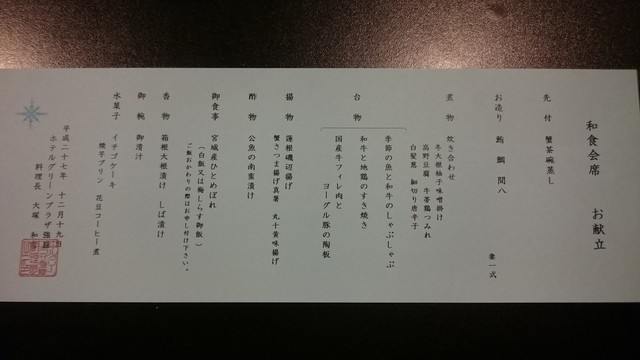 和食会席　お献立
先付　蟹茶碗蒸し
お造り　鮪　鯛　間八
妻一式
煮物　炊き合わせ
冬大根柚子味噌掛け
高野豆腐　牛蒡鶏つみれ
白髪葱　細切り唐辛子
台物
季節の魚と和牛のしゃぶしゃぶ
和牛と地鶏のすき焼き
国産牛フィレ肉と
ヨーグル豚の陶板
揚物　蓮根磯辺揚げ
蟹さつま揚げ真薯　丸十黄味揚げ
酢物　公魚の南蛮漬け
御食事　宮城産ひとめぼれ
（白飯又は梅しらす御飯）
ご飯おかわりの際はお申し付け下さい。
香物　箱根大根漬け　しば漬け
御椀　御清汁
水菓子　イチゴケーキ
焼芋プリン　花豆コーヒー煮
平成二十七年　十二月十九日
ホテルグリーンプラザ強羅
料理長　大塚　和